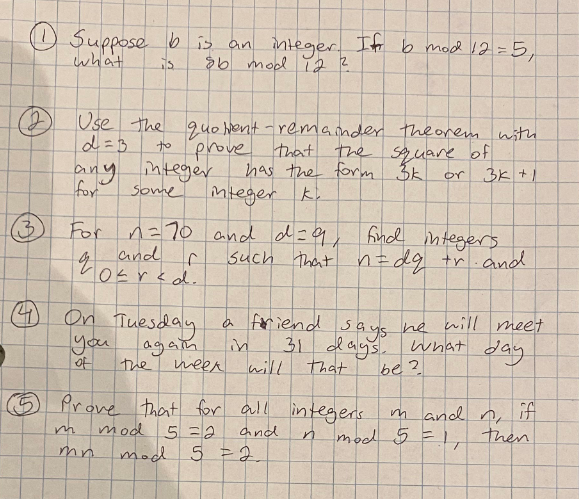 ① Suppose b is an integer. If b mod 12 = 5,
what is 8b mod 12?
② Use the quotient-remainder theorem with
d=3 to prove that the square of
any integer has the form 3k or 3k+1
for some integer k.
③ For n=70 and d=9, find integers
q and r such that n=dq +r and
0≤r<d.
④ On Tuesday a friend says he will meet
you again in 31 days. What day
of the week will that be?
⑤ Prove that for all integers m and n, if
m mod 5 =2 and n mod 5 =1, then
mn mod 5 =2.